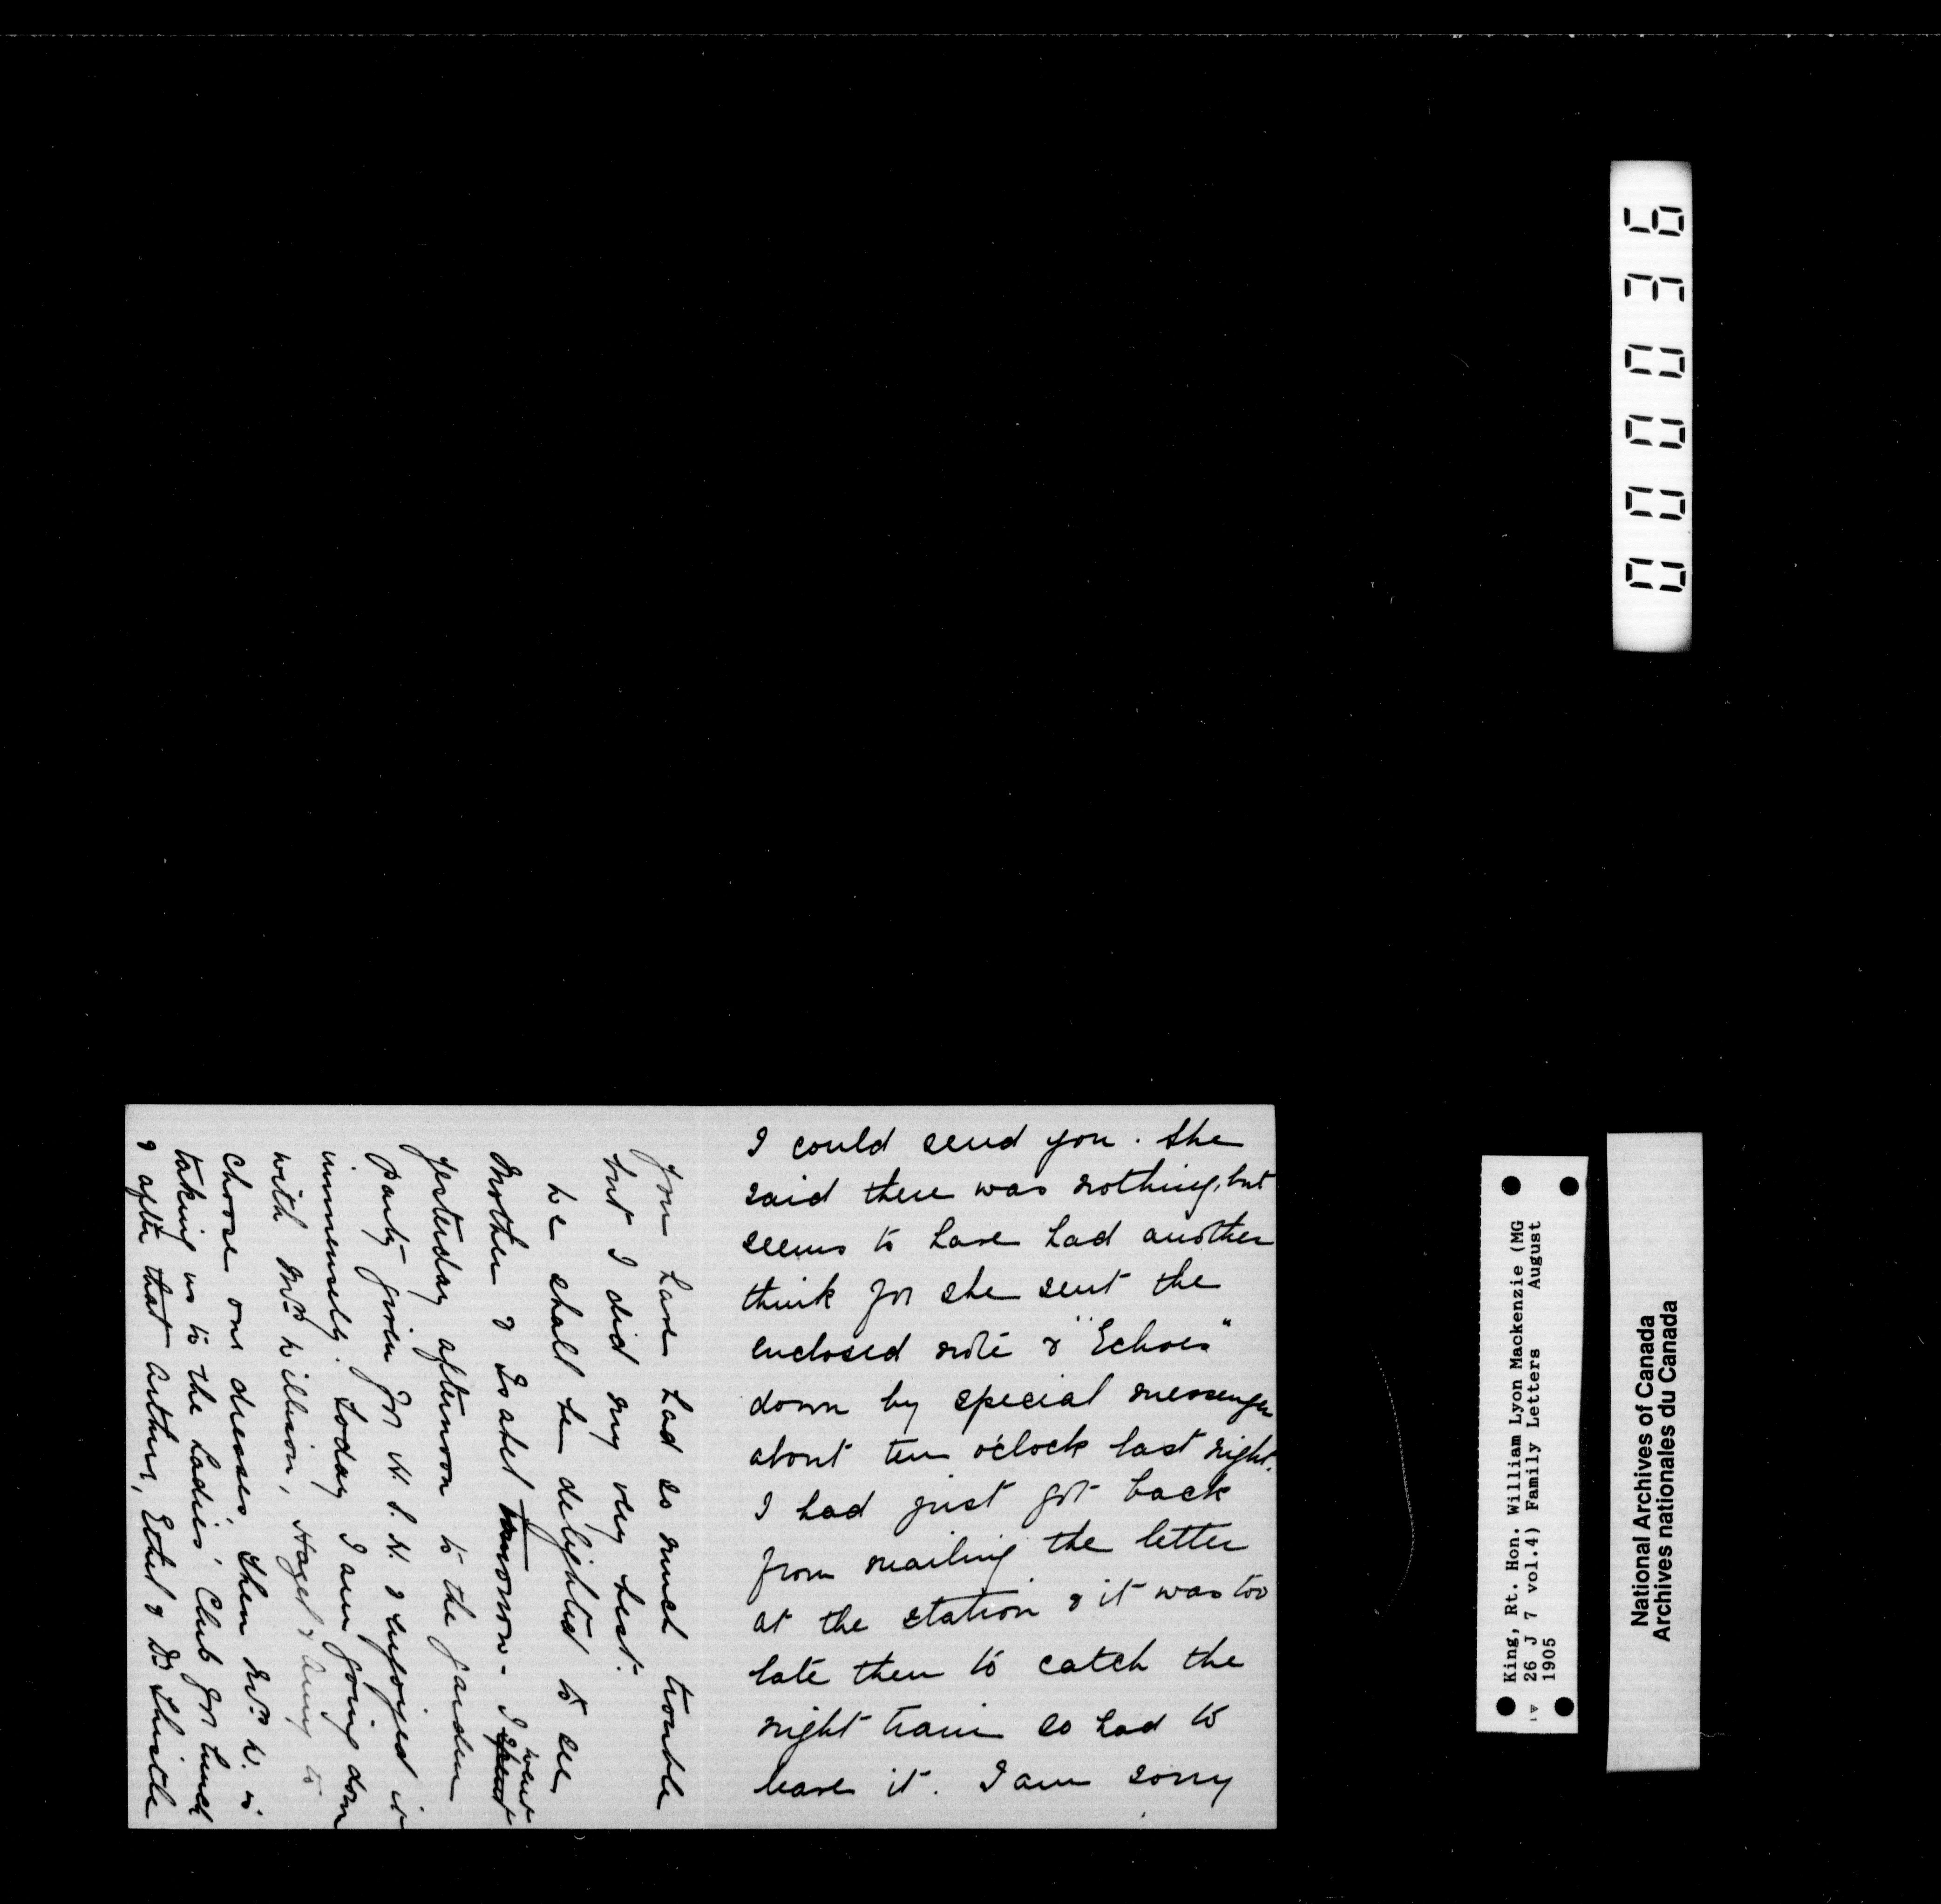 I could send you. She
said there was nothing, but
seems to have had another
think for she sent the
enclosed note & "Echoes"
down by special messenger
about ten o'clock last night.
I had just got back
from mailing the letter
at the station & it was too
late then to catch the
night train so had to
leave it. I am sorry
you have had so much trouble
but I did my very best.
We shall be delighted to see
Mother & Isabel tomorrow - I spent went
yesterday afternoon to the garden
party given for H. S. H. & enjoyed it
immensely. Today I am going down
with Mrs Willison, Hazel & Amy to
choose our dresses, then Mrs W. is
taking us to the Ladies' Club for lunch
& after that Arthur, Ethel & Dr Thistle
000036
King, Rt. Hon. William Lyon Mackenzie (MG
26 J 7 vol.4) Family Letters August
1905
National Archives of Canada
Archives nationales du Canada